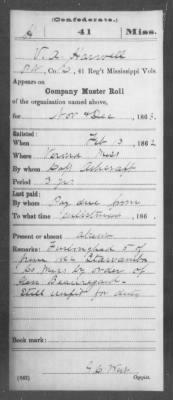 (Confederate.)
H 41 Miss.
V. A. Harwell
Pvt, Co. D, 41 Reg't Mississippi Vols.
Appears on
Company Muster Roll
of the organization named above,
for Nov & Dec, 1863.
Enlisted:
When Feb 13, 1862
Where Verona Miss
By whom Capt Ashcraft
Period 3 yrs
Last paid:
By whom Pay due from
To what time enlistment, 186 .
Present or absent Absent
Remarks: Furloughed 5 of
June 1862
Co Miss by order of
Gen Beauregard
Still unfit for duty
Book mark:
(642) Copyist.